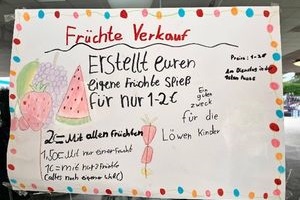 Früchte Verkauf
Erstellt euren
eigene Früchte Spieß
für nur 1-2€
Preise: 1-2€
Am Dienstag in der
Ein
guten
zweck
für
die
Löwen Kinder
2€= Mit allen Früchten
1,50€ Mit nur einer Frucht
1€= mit nur 2 Früchte
(alles nach eigener Wahl)